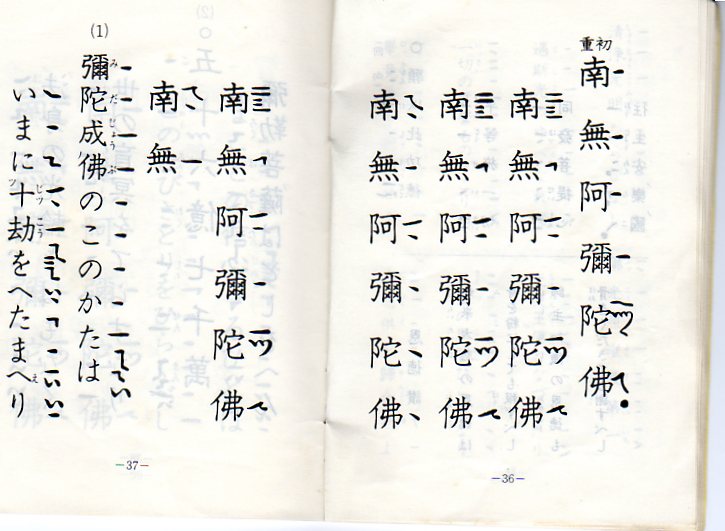 初重
南無阿彌陀佛
南無阿彌陀佛
南無阿彌陀佛
南無阿彌陀佛
—36—
南無阿彌陀佛
南無
(1)
彌陀成佛のこのかたは
いまに十劫をへたまへり
—37—